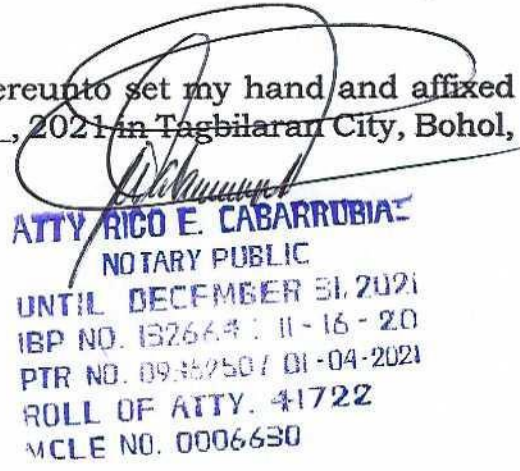 ereunto set my hand and affixed
_, 2021 in Tagbilaran City, Bohol,
ATTY RICO E. CABARRUBIAS
NOTARY PUBLIC
UNTIL DECEMBER 31, 2021
IBP NO. : 11-16-20
PTR NO. / 01-04-2021
ROLL OF ATTY. 41722
MCLE NO. 0006630